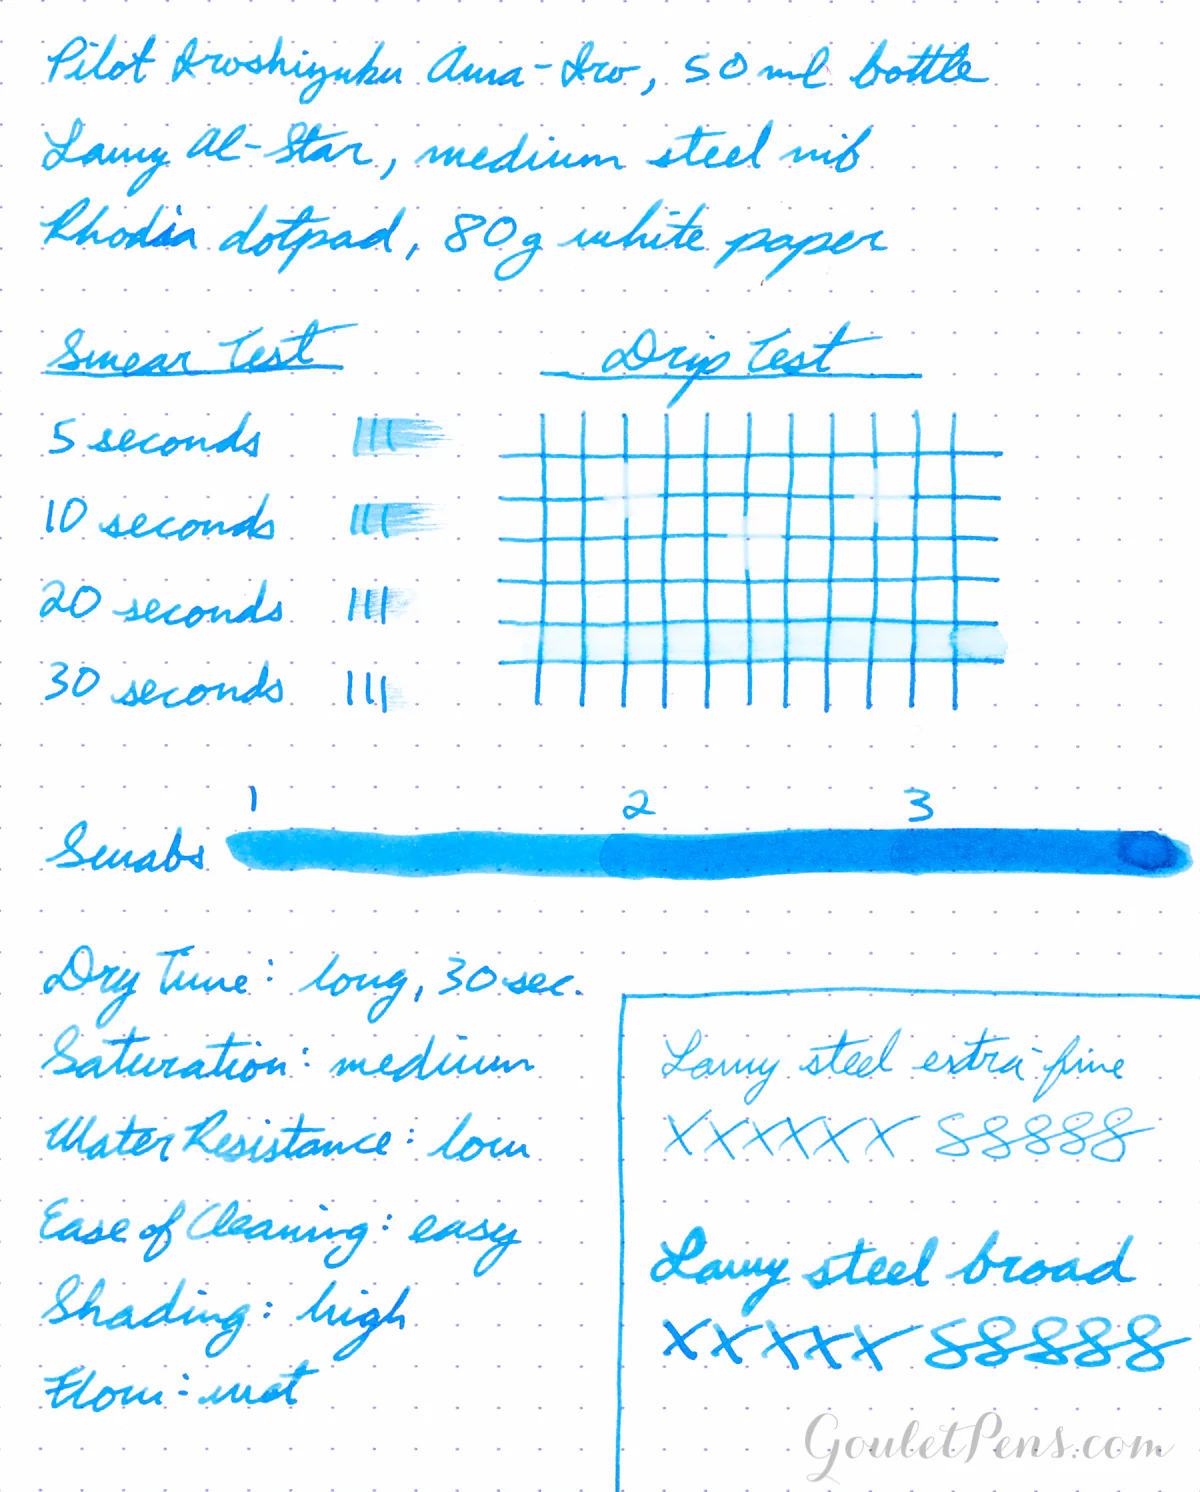 Pilot Iroshizuku Ama-Iro, 50 ml bottle
Lamy Al-Star, medium steel nib
Rhodia dotpad, 80g white paper
Smear Test
Drip Test
5 seconds
10 seconds
20 seconds
30 seconds
1 2 3
Swabs
Dry Time: long, 30 sec.
Saturation: medium
Water Resistance: low
Ease of Cleaning: easy
Shading: high
Flow: wet
Lamy steel extra-fine
XXXXXX SSSSS
Lamy steel broad
XXXXX SSSSS
GouletPens.com